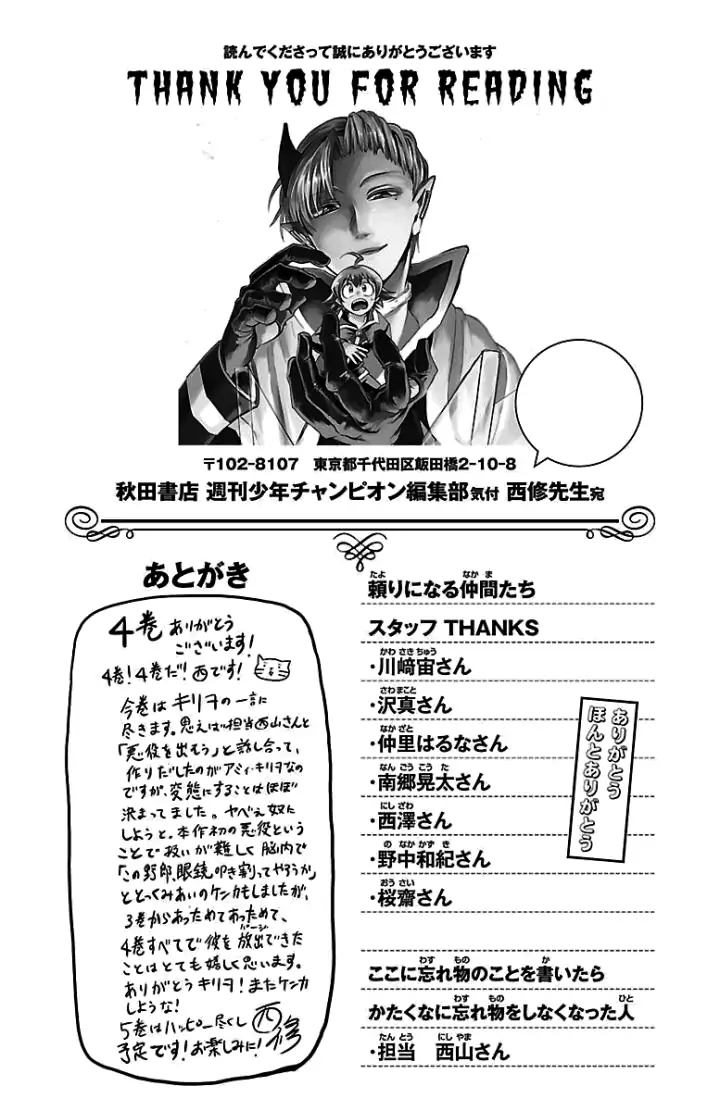 読んでくださって誠にありがとうございます
THANK YOU FOR READING
〒102-8107 東京都千代田区飯田橋2-10-8
秋田書店 週刊少年チャンピオン編集部気付 西修先生宛
あとがき
4巻 ありがとう
ございます!
4巻!4巻だ!西です!
今巻はキリヲの一言に
尽きます。思えば担当西山さんと
「悪役を出もう」と話し合って、
作りだしたのがアミィ・キリヲなの
ですが、変態にすることはほぼ
決まってました。ヤベぇ奴に
しようと。本作初の悪役という
ことで扱いが難しく脳内で
「この野郎、眼鏡叩き割ってやろうか」
ととっくみあいのケンカもしましたが、
3巻からあっためてあっためて、
4巻すべてで彼を放出できた
パージ
ことはとても嬉しく思います。
ありがとうキリヲ!またケンカ
しような!
5巻はハッピー尽くし
予定です!お楽しみに! 西修
たよ なかま
頼りになる仲間たち
スタッフ THANKS
かわさきちゅう
・川﨑宙さん
さわまこと
・沢真さん
なかざと
・仲里はるなさん
なんごうこうた
・南郷晃太さん
にしざわ
・西澤さん
のなかかずき
・野中和紀さん
おうさい
・桜齋さん
ありがとう
ほんとありがとう
わす もの か
ここに忘れ物のことを書いたら
わす もの ひと
かたくなに忘れ物をしなくなった人
たんとう にしやま
・担当 西山さん